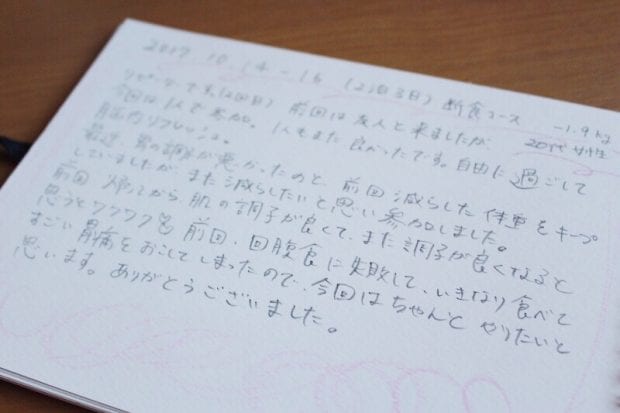 2017 10 14-16 (2泊3日) 断食コース -1.9kg
リピーターです。(2回目) 前回は友人と来ましたが 20代 女性
今回は1人で参加。1人もまた良かったです。自由に過ごして
腸内リフレッシュ。
最近、胃の調子が悪かったのと、前回減らした体重をキープ
していましたが、また減らしたいと思い参加しました。
前回 帰ってから 肌の調子が良くて、また調子が良くなると
思うとワクワク 前回、回腹食に失敗して、いきなり食べて
すごい胃痛をおこしてしまったので、今回はちゃんと やりたいと
思います。ありがとうございました。